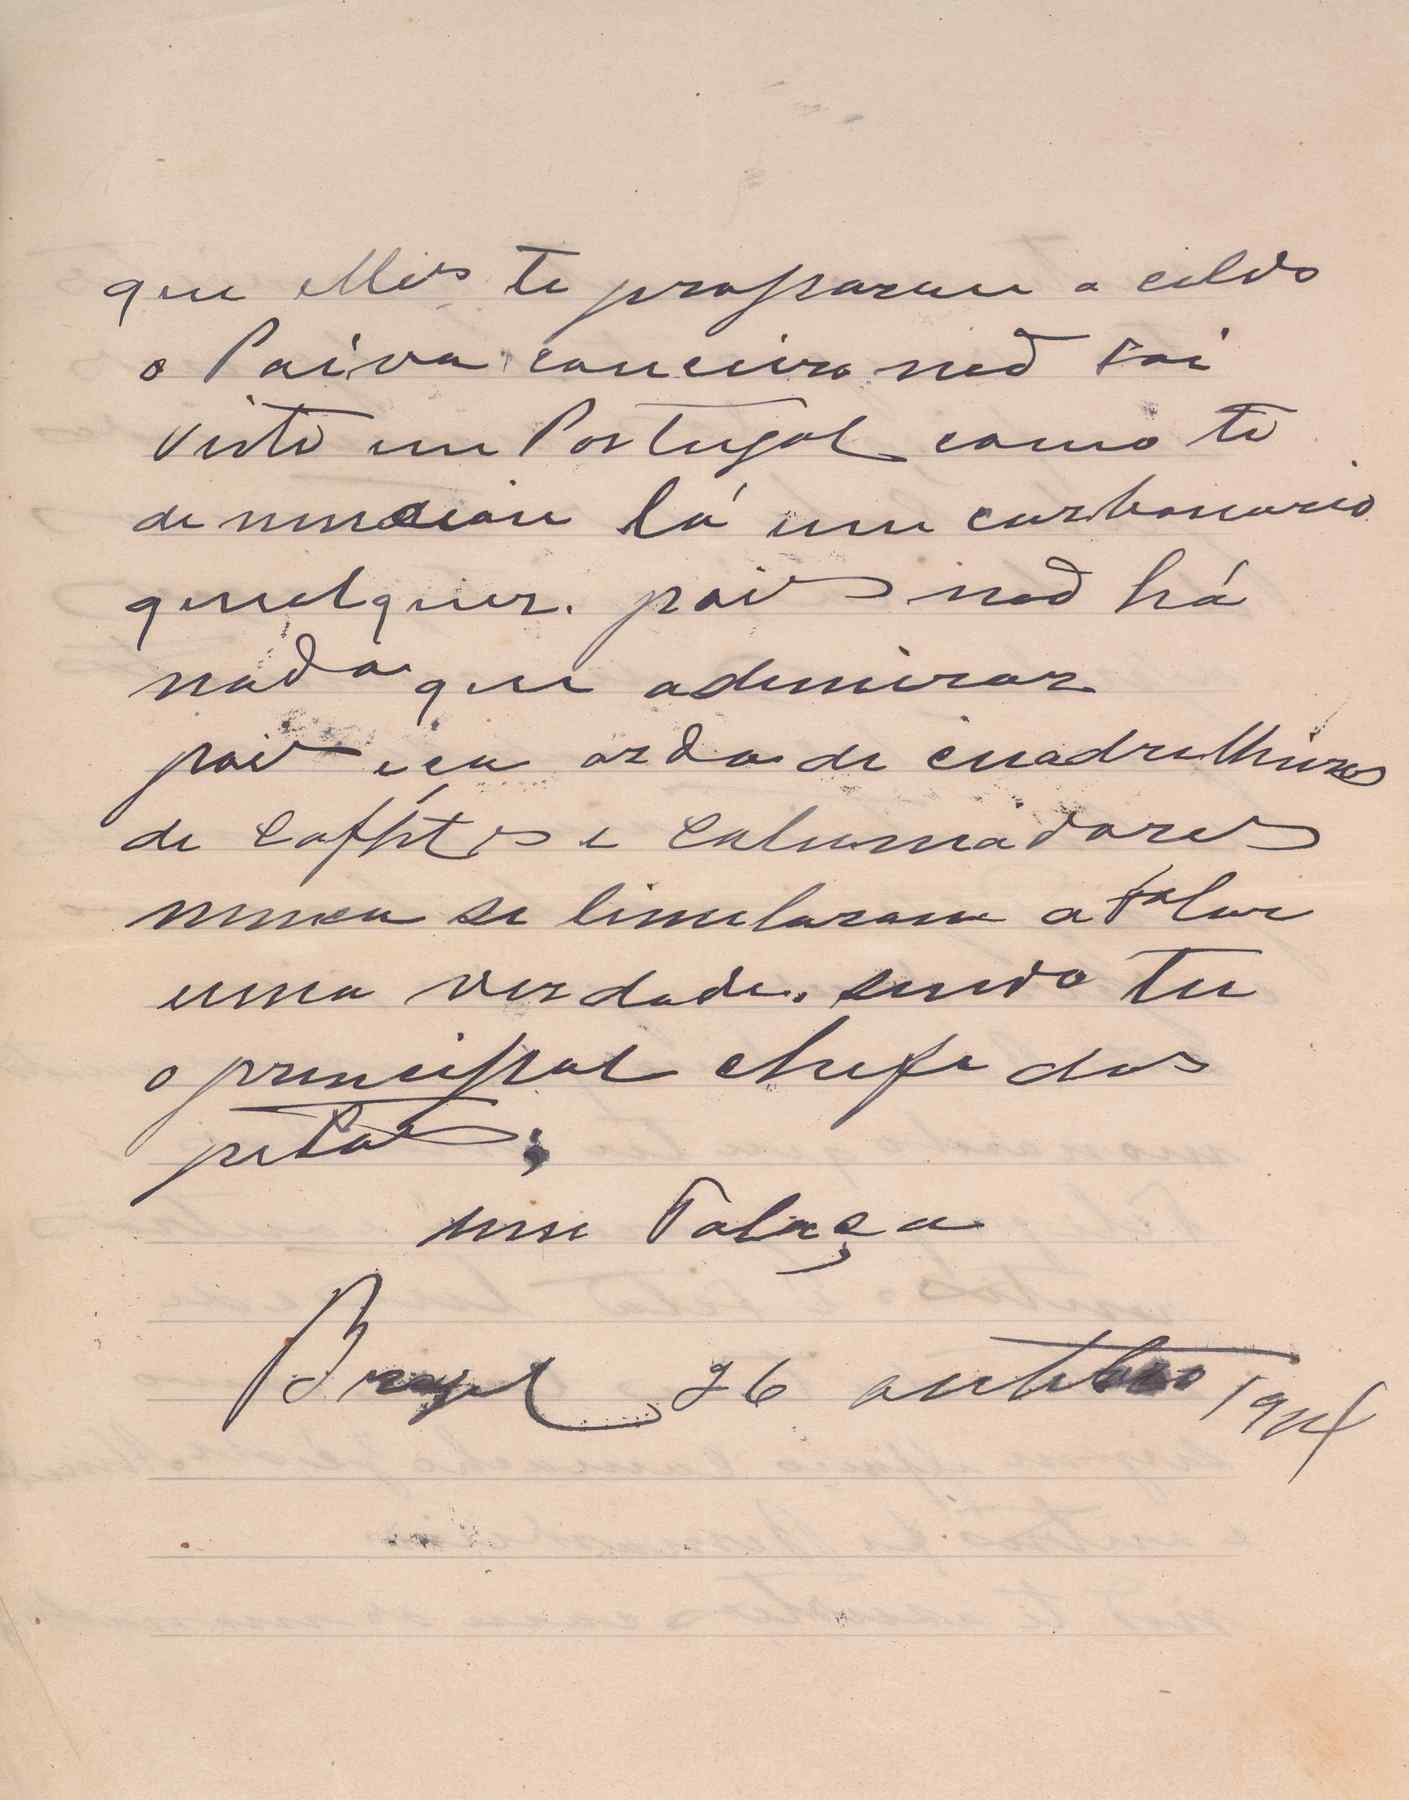 que elles te prepararam a cilds
o Paiva couceiro ned foi
visto em Portugal como te
denunciou lá um carbonario
qualquer. pois nod há
nada que ademirar
pois eça orda de cuadrelheiros
de e calumiadores
nunca se limitaram a falar
uma verdade. sendo tu
o principal chefe dos
petas;
um Talaça
Brazil 26 outubro 1914